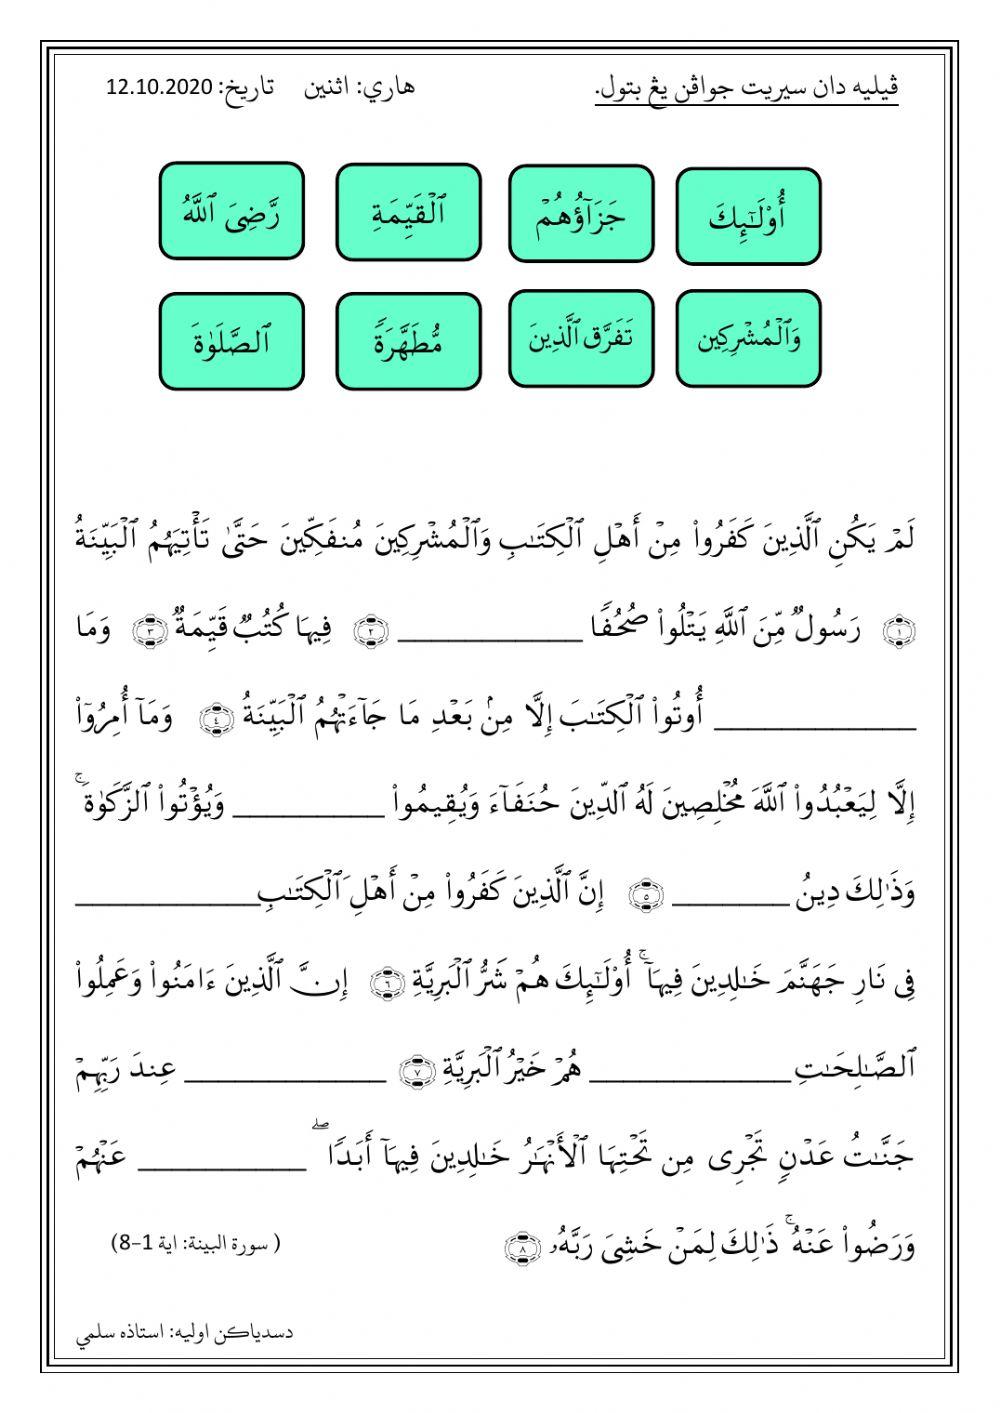 ڤيليه دان سيريت جواڤن يڠ بتول. هاري: اثنين تاريخ: 12.10.2020
أُوْلَـٰٓئِكَ جَزَآؤُهُمْ ٱلْقَيِّمَةِ رَّضِىَ ٱللَّهُ
وَٱلْمُشْرِكِين تَفَرَّق ٱلَّذِينَ مُّطَهَّرَةً ٱلصَّلَوٰةَ
لَمْ يَكُنِ ٱلَّذِينَ كَفَرُوا۟ مِنْ أَهْلِ ٱلْكِتَـٰبِ وَٱلْمُشْرِكِينَ مُنفَكِّينَ حَتَّىٰ تَأْتِيَهُمُ ٱلْبَيِّنَةُ
﴿١﴾ رَسُولٌ مِّنَ ٱللَّهِ يَتْلُوا۟ صُحُفًا ___________ ﴿٢﴾ فِيهَا كُتُبٌ قَيِّمَةٌ ﴿٣﴾ وَمَا
____________ أُوتُوا۟ ٱلْكِتَـٰبَ إِلَّا مِنۢ بَعْدِ مَا جَآءَتْهُمُ ٱلْبَيِّنَةُ ﴿٤﴾ وَمَآ أُمِرُوٓا۟
إِلَّا لِيَعْبُدُوا۟ ٱللَّهَ مُخْلِصِينَ لَهُ ٱلدِّينَ حُنَفَآءَ وَيُقِيمُوا۟ _________ وَيُؤْتُوا۟ ٱلزَّكَوٰةَ ۚ
وَذَٰلِكَ دِينُ _______ ﴿٥﴾ إِنَّ ٱلَّذِينَ كَفَرُوا۟ مِنْ أَهْلِ َٱلْكِتَـٰبِ___________
فِى نَارِ جَهَنَّمَ خَـٰلِدِينَ فِيهَآ ۚ أُوْلَـٰٓئِكَ هُمْ شَرُّ ٱلْبَرِيَّةِ ﴿٦﴾ إِنَّ ٱلَّذِينَ ءَامَنُوا۟ وَعَمِلُوا۟
ٱلصَّـٰلِحَـٰتِ ____________ هُمْ خَيْرُ ٱلْبَرِيَّةِ ﴿٧﴾ ____________ عِندَ رَبِّهِمْ
جَنَّـٰتُ عَدْنٍ تَجْرِى مِن تَحْتِهَا ٱلْأَنْهَـٰرُ خَـٰلِدِينَ فِيهَآ أَبَدًا ۖ __________ عَنْهُمْ
وَرَضُوا۟ عَنْهُ ۚ ذَٰلِكَ لِمَنْ خَشِىَ رَبَّهُۥ ﴿٨﴾ ( سورة البينة: اية 1-8)
دسدياكن اوليه: استاذه سلمي